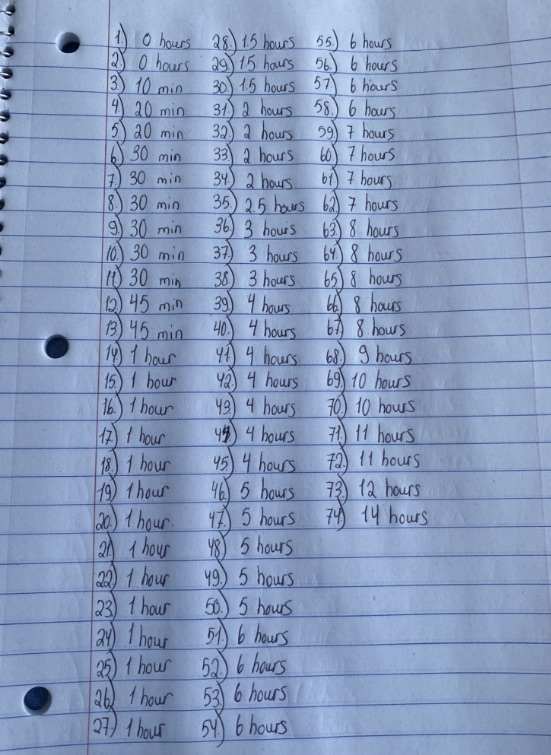 1) 0 hours
2) 0 hours
3) 10 min
4) 20 min
5) 20 min
6) 30 min
7.) 30 min
8) 30 min
9) 30 min
10.) 30 min
11) 30 min
12) 45 min
13) 45 min
14) 1 hour
15) 1 hour
16.) 1 hour
17.) 1 hour
18.) 1 hour
19) 1 hour
20.) 1 hour.
21) 1 hour
22) 1 hour
23) 1 hour
24) 1 hour
25) 1 hour
26) 1 hour
27) 1 hour
28.) 1.5 hours
29) 1.5 hours
30) 1.5 hours
31) 2 hours
32) 2 hours
33) 2 hours
34) 2 hours
35) 2.5 hours
36) 3 hours
37.) 3 hours
38) 3 hours
39) 4 hours
40.) 4 hours
41) 4 hours
42) 4 hours
43) 4 hours
44) 4 hours
45) 4 hours
46) 5 hours
47.) 5 hours
48) 5 hours
49.) 5 hours
50.) 5 hours
51.) 6 hours
52.) 6 hours
53) 6 hours
54.) 6 hours
55.) 6 hours
56.) 6 hours
57) 6 hours
58.) 6 hours
59) 7 hours
60) 7 hours
61) 7 hours
62) 7 hours
63) 8 hours
64) 8 hours
65) 8 hours
66) 8 hours
67) 8 hours
68) 9 hours
69) 10 hours
70) 10 hours
71) 11 hours
72.) 11 hours
73) 12 hours
74) 14 hours